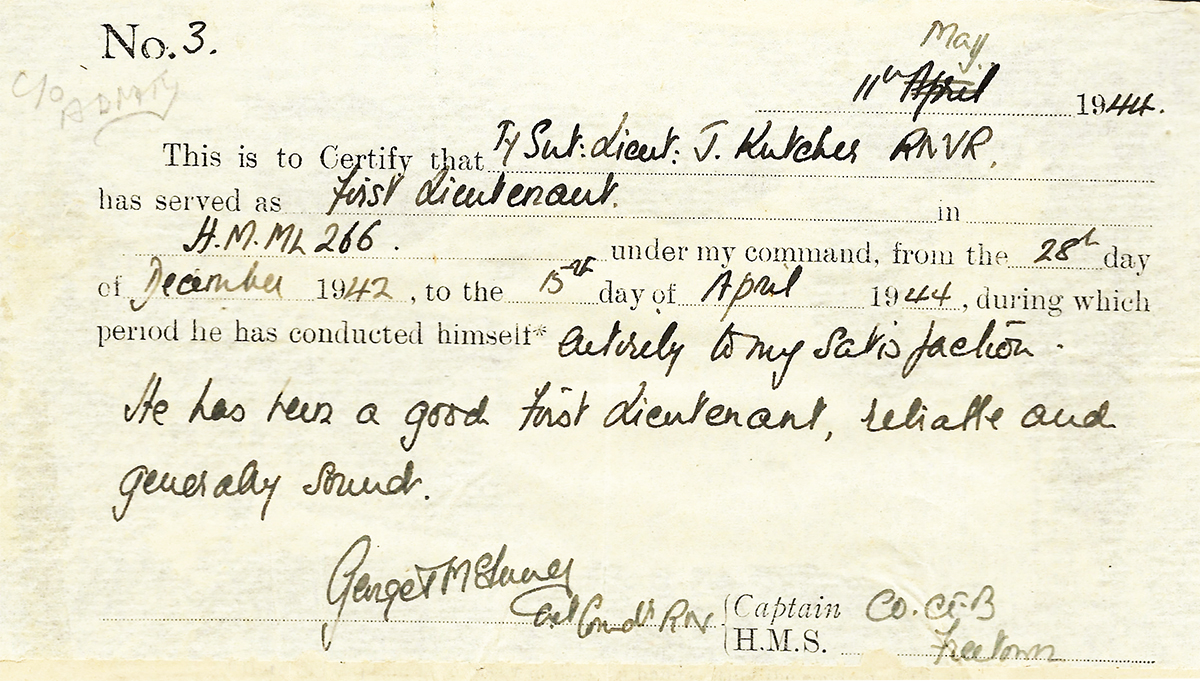 No. 3.
May
11th April 1944.
C/o ADMTY
This is to Certify that Ty Sut: Lieut: J. Kutcher RNVR.
has served as First Lieutenant. in
H.M.ML 266. under my command, from the 28th day
of December 1942, to the 15th day of April 1944, during which
period he has conducted himself* entirely to my satisfaction.
He has been a good First Lieutenant, reliable and
generally sound.
George
Captain CO. CFB
H.M.S. Freetown